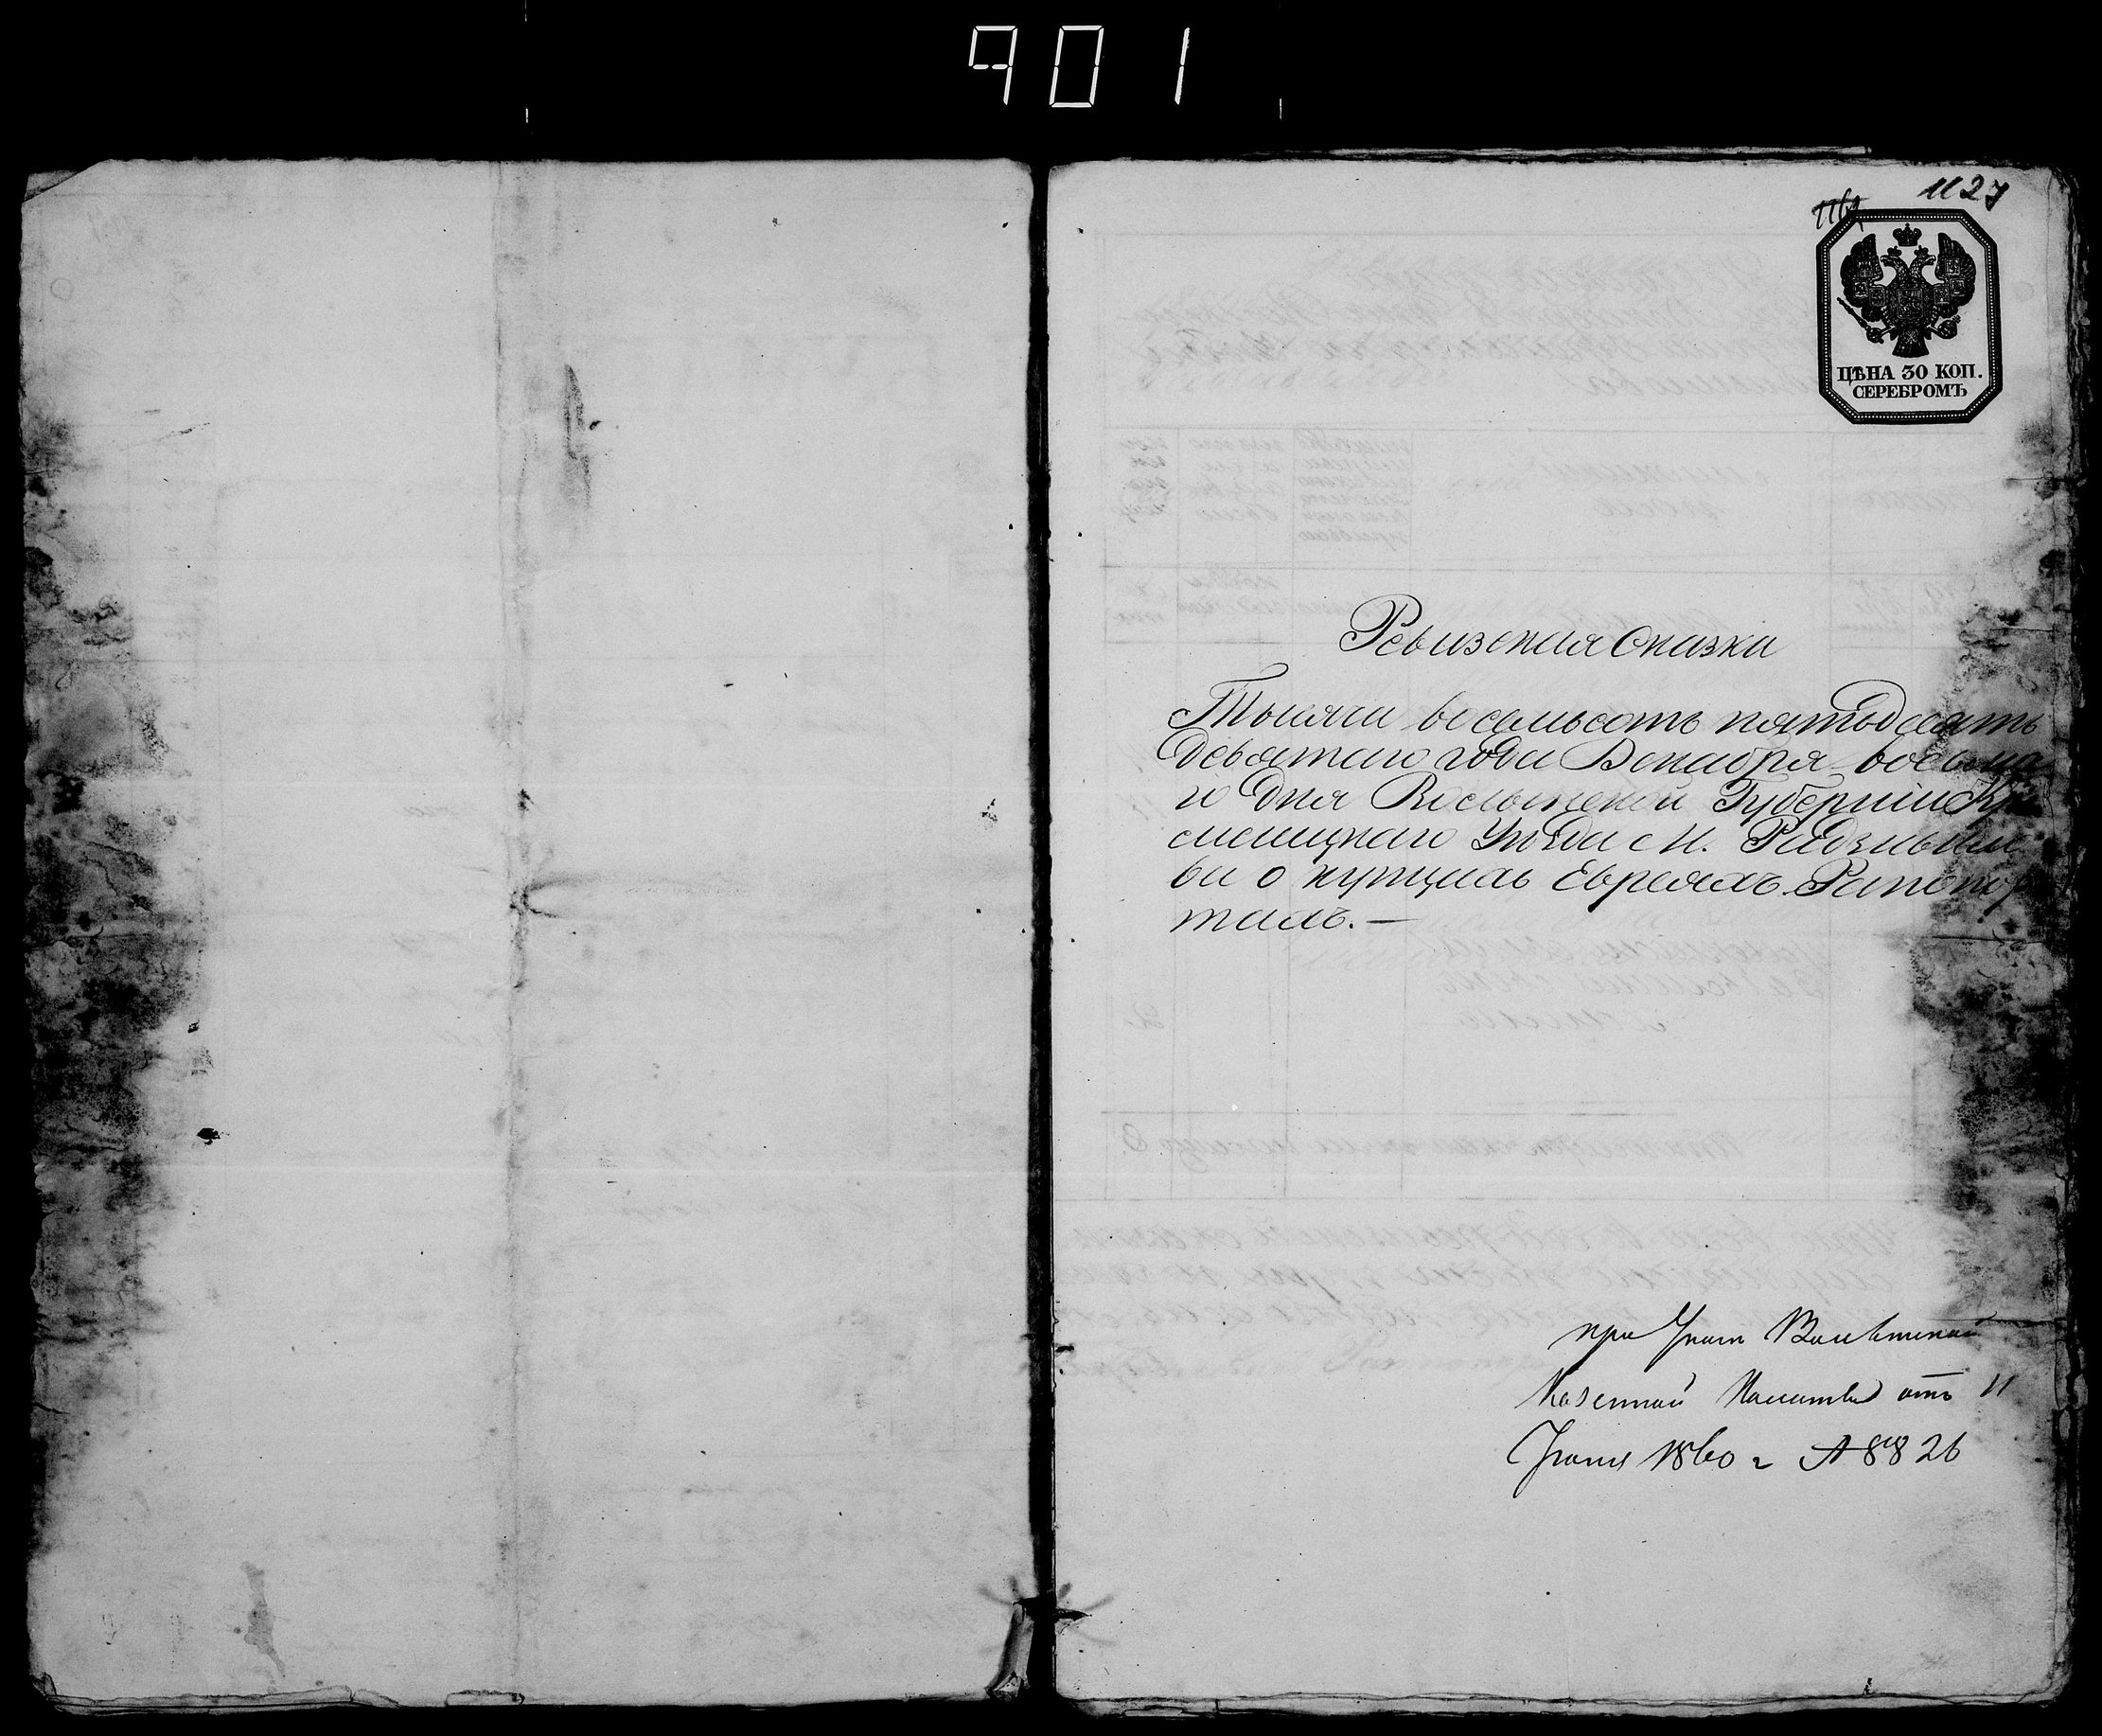 901
1127
1169
ЦѢНА 30 КОП.
СЕРЕБРОМЪ
Ревизская Сказка
Тысяча восемьсотъ пятьдесятъ
девятаго года Декабря восьма
го дня Волынской Губерніи Кре
менецкаго Уѣзда М. Радзивил
ва о купцахъ Евреяхъ Рапопор
тахъ. —
при Указѣ Волынской
Казенной Палаты отъ 11
1860 г № 8826